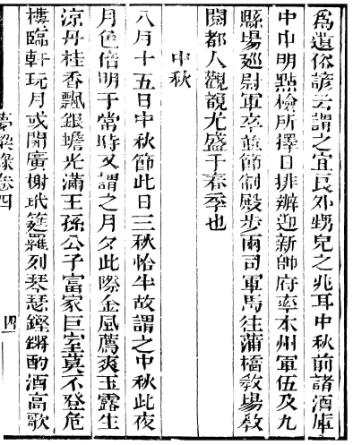 為遺俗諺云謂之宜良外甥兒之兆耳中秋前諸酒庫
中申明點檢所擇日排辦迎新帥府率本州軍伍及九
縣場廵尉軍卒並節制殿步兩司軍馬往蒲橋教場教
閱都人觀覩尤盛于春季也
中秋
八月十五日中秋節此日三秋恰半故謂之中秋此夜
月色倍明于常時又謂之月夕此際金風薦爽玉露生
涼丹桂香飄銀蟾光滿王孫公子富家巨室莫不登危
樓臨軒玩月或開廣榭玳筵羅列琴瑟鏗鏘酌酒高歌
夢粱錄卷四
四